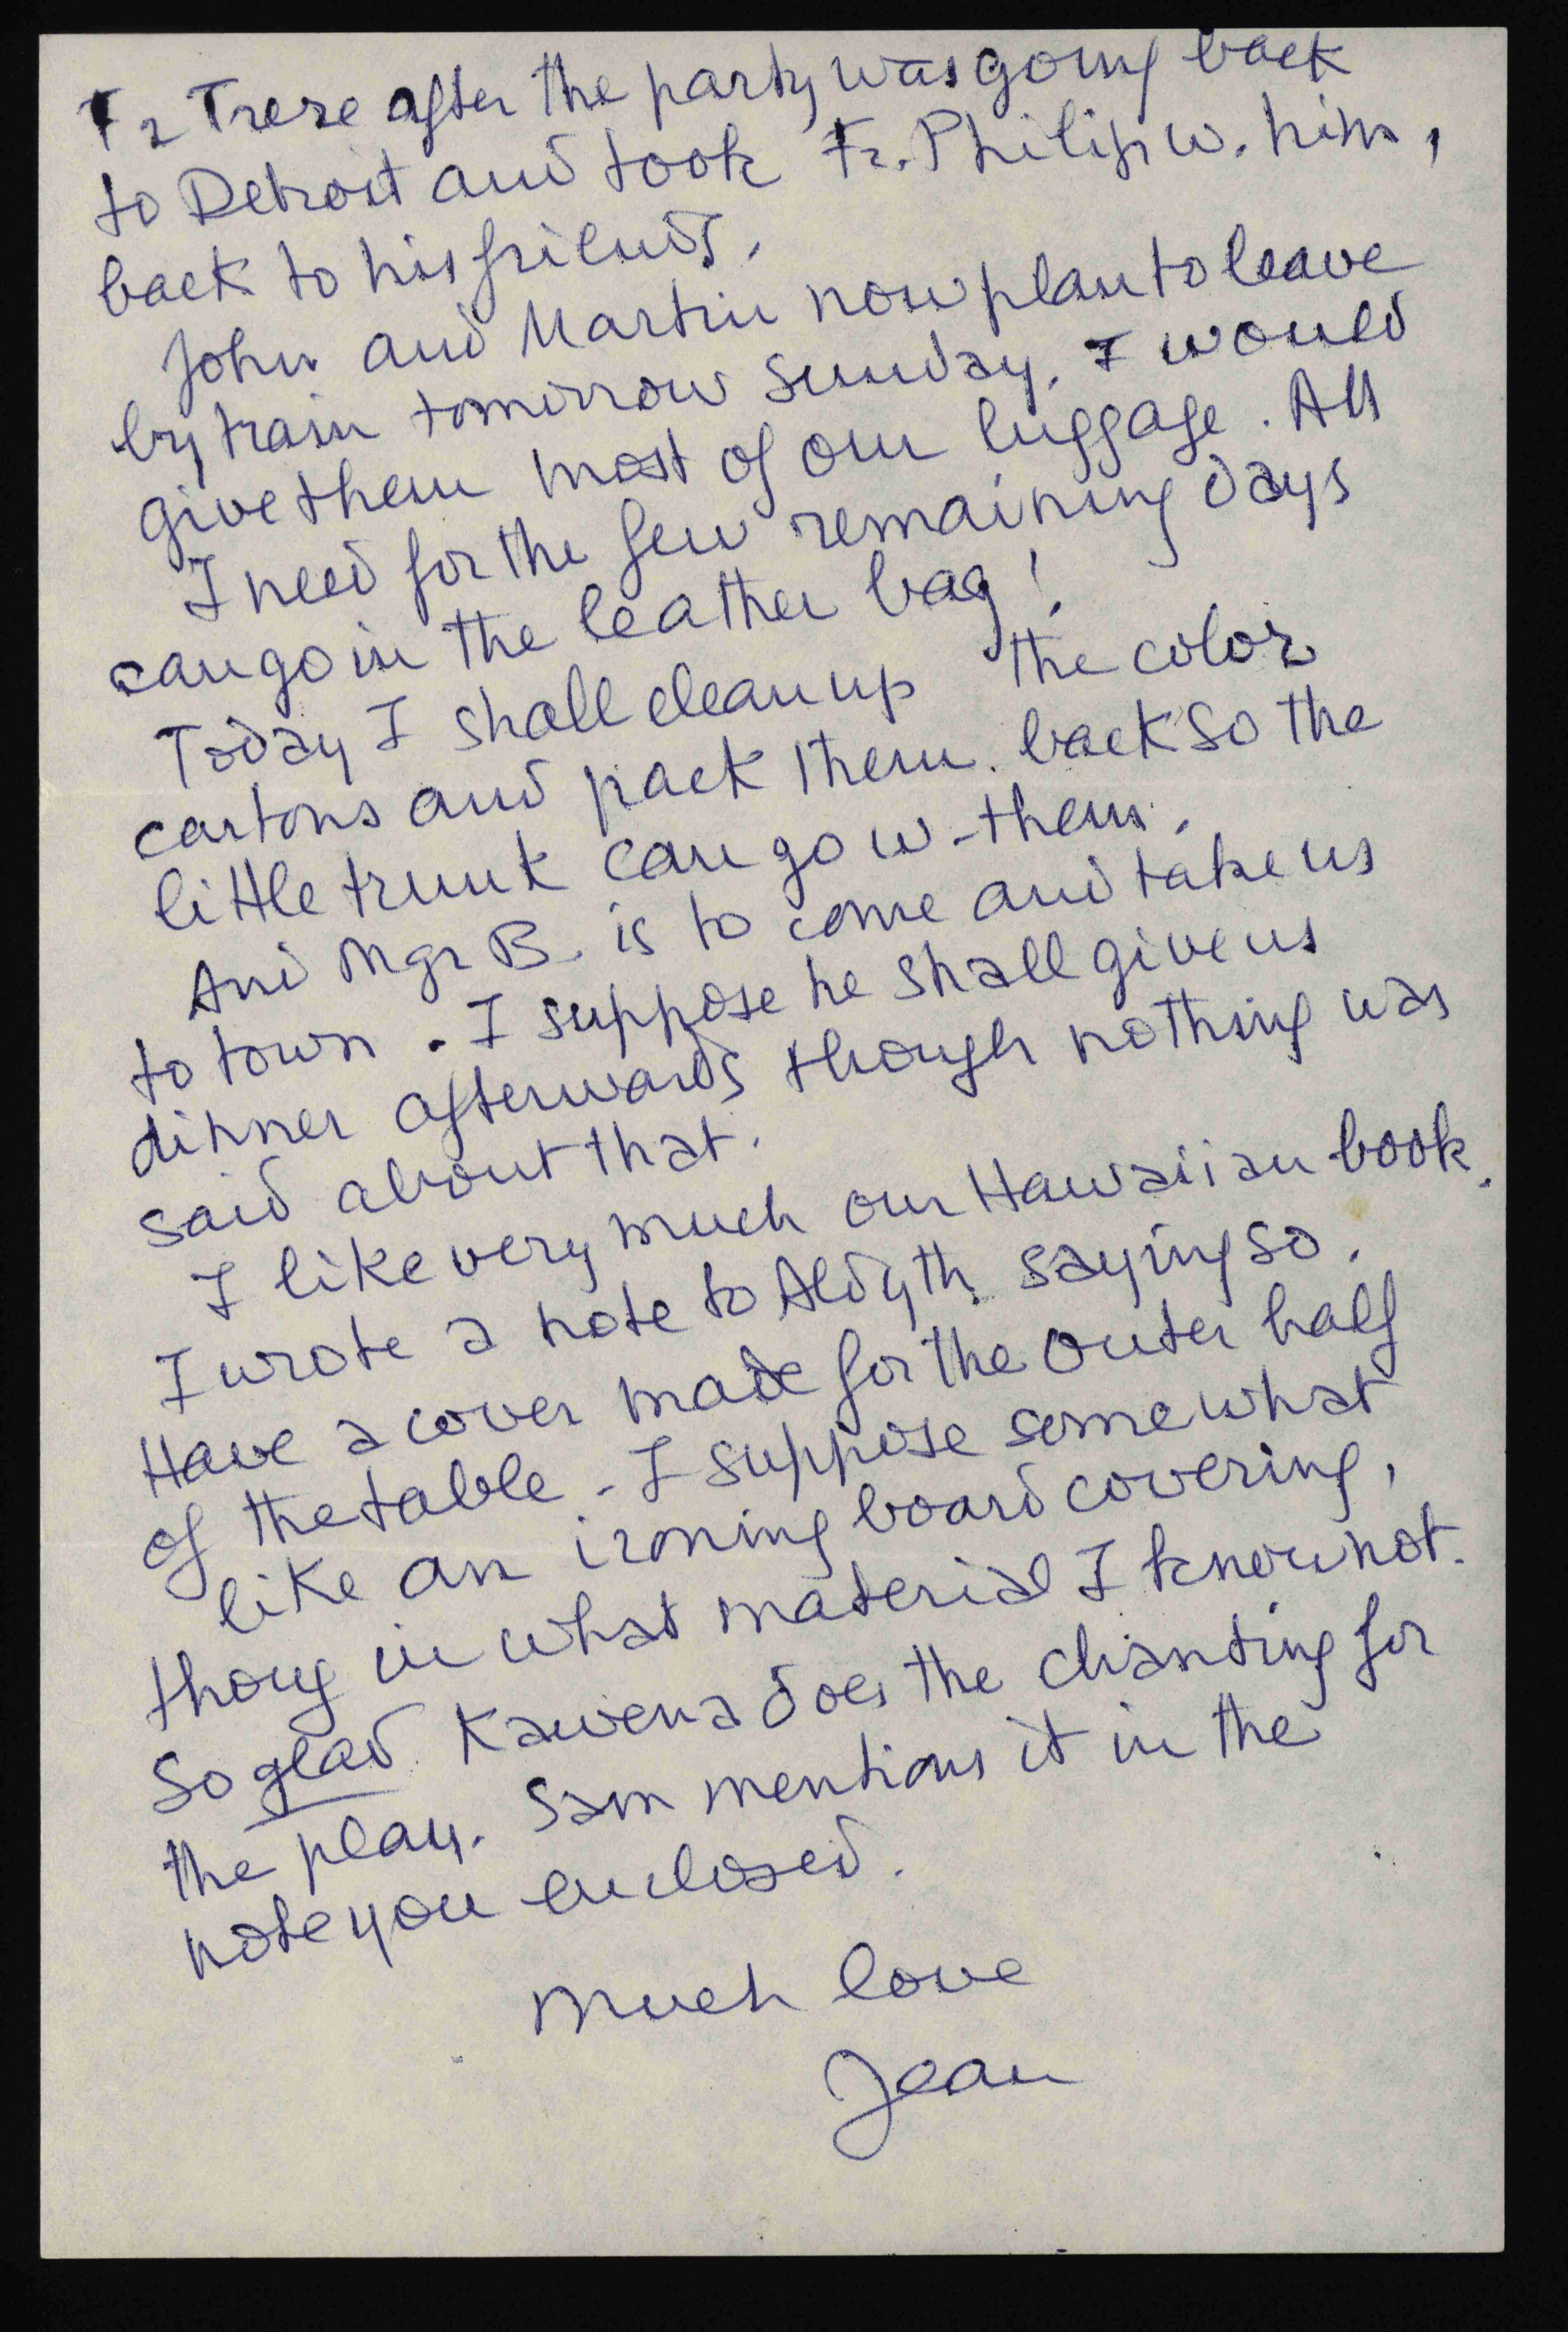 Fr Trere after the party was going back
to Detroit and took Fr. Philip w. him,
back to his friends.
John and Martin now plan to leave
by train tomorrow Sunday. I would
give them most of our luggage. All
I need for the few remaining days
can go in the leather bag!
Today I shall clean up the color
cartons and pack them back so the
little trunk can go w-them.
And Mgr B. is to come and take us
to town. I suppose he shall give us
dinner afterwards though nothing was
said about that.
I like very much our Hawaiian book.
I wrote a note to Aldyth saying so.
Have a cover made for the outer half
of the table - I suppose somewhat
like an ironing board covering,
thoug in what material I know not.
So glad Kawena does the chanting for
the play. Sam mentions it in the
note you enclosed.
Much love
Jean